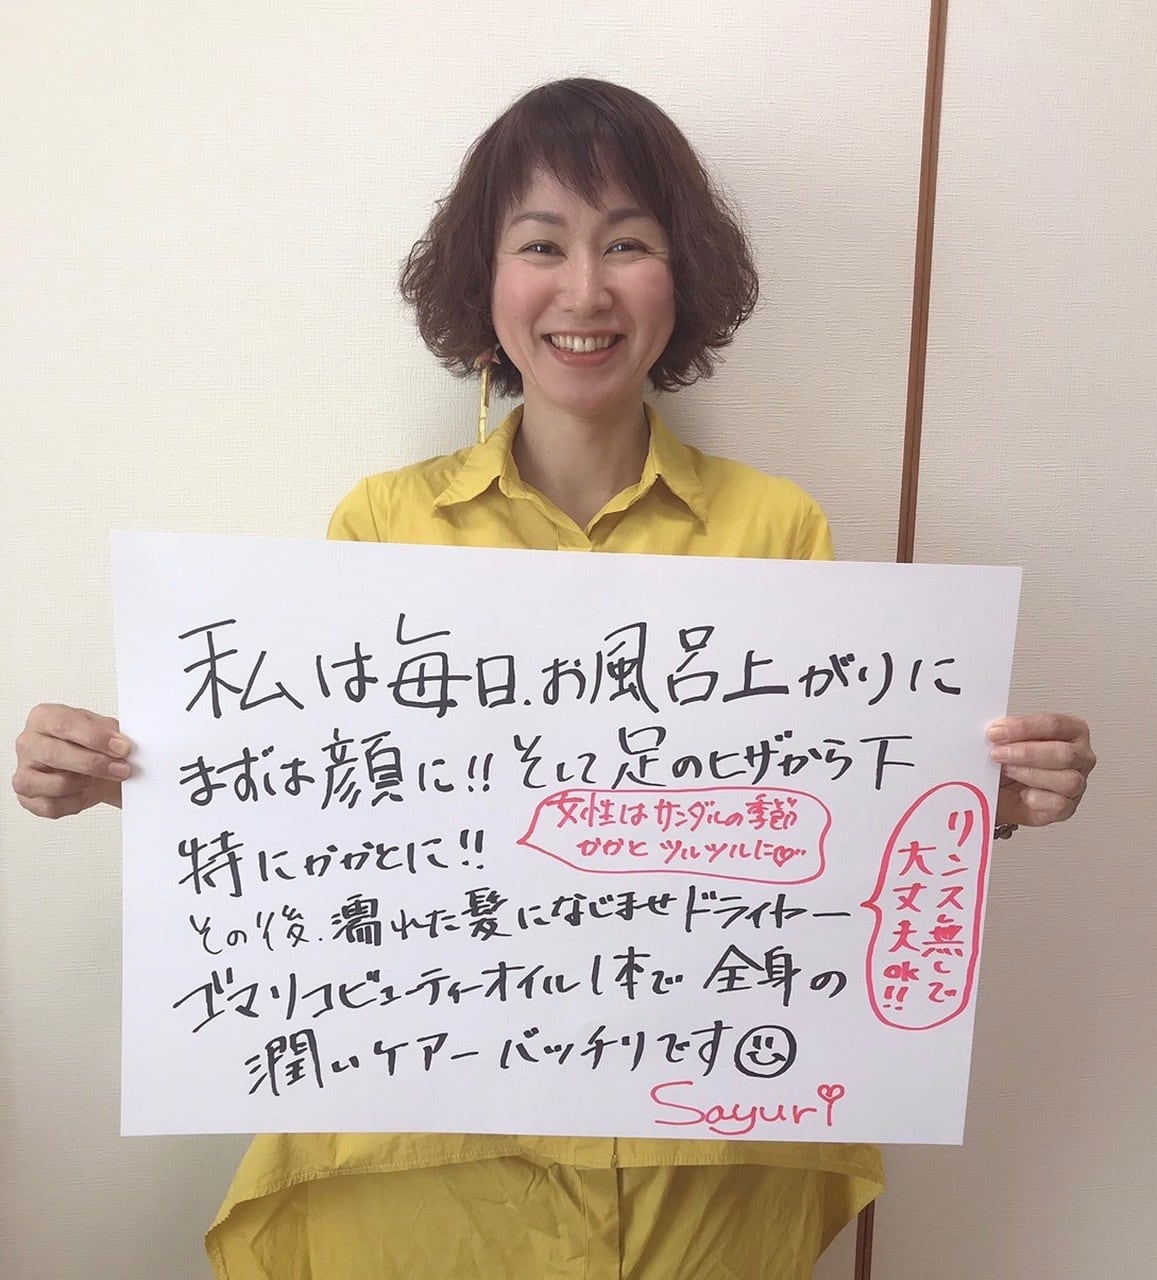 私は毎日、お風呂上がりに
まずは顔に!! そして足のヒザから下
特にかかとに!!
女性はサンダルの季節
かかと ツルツルに♡…
その後、濡れた髪になじませドライヤー
リンス無しで
大丈夫ok!!
ゴマリコビューティーオイル1本で 全身の
潤いケアーバッチリです☺
Sayuri